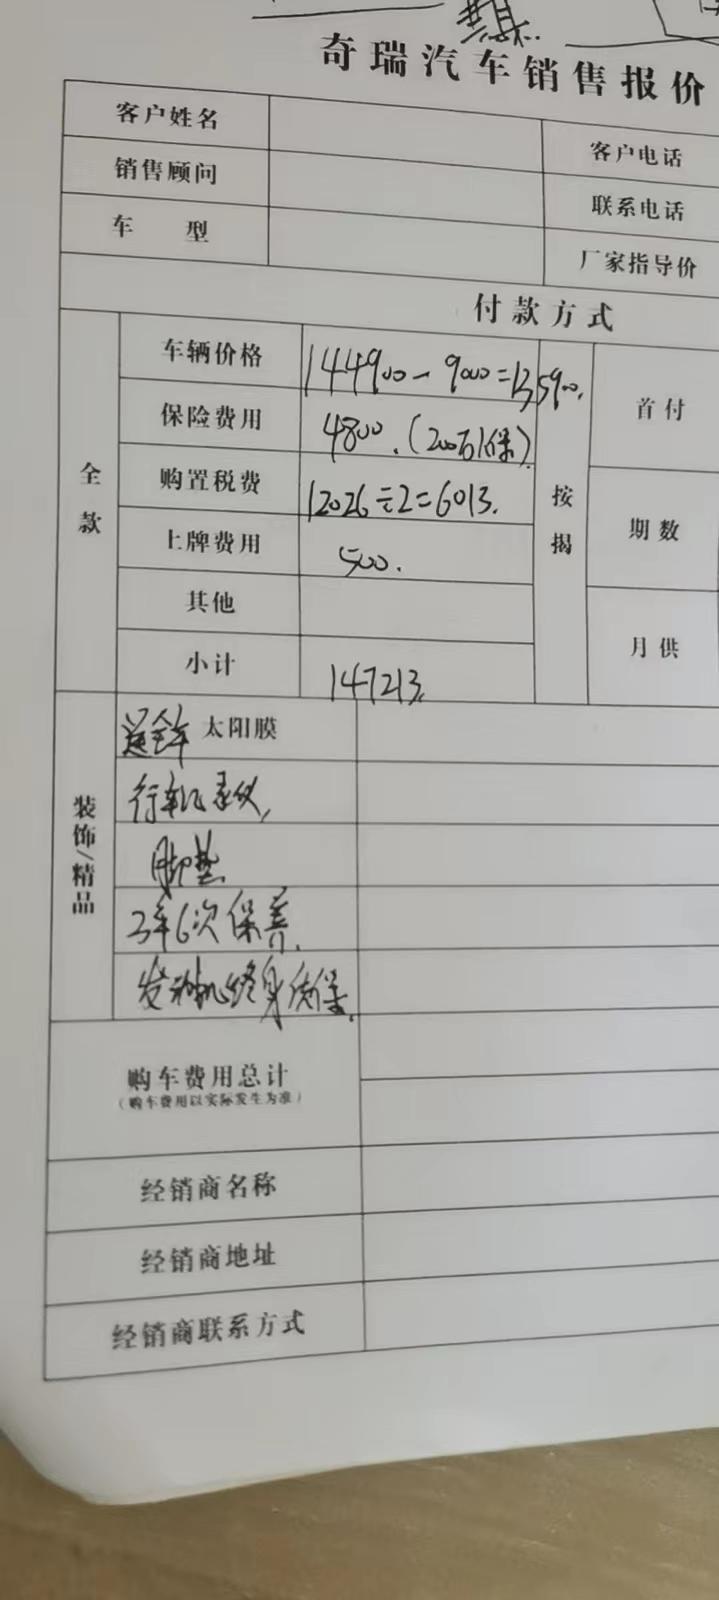 奇瑞汽车销售报价
客户姓名
客户电话
销售顾问
联系电话
车 型
厂家指导价
付款方式
全款
车辆价格
144900-9000=135900.
保险费用
4800.(200万保).
购置税费
12026÷2=6013.
上牌费用
500.
其他
小计
147213.
按揭
首付
期数
月供
装饰/精品
送全车 太阳膜
行车记录仪,
脚垫
3年6次保养.
发动机终身质保.
购车费用总计
(购车费用以实际发生为准)
经销商名称
经销商地址
经销商联系方式